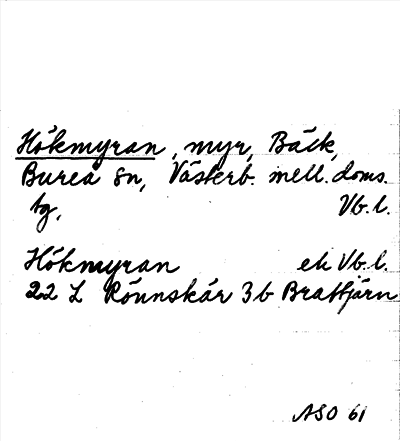 Hökmyran, myr, Bäck,
Bureå sn, Västerb. mell. doms.
tg. Vb. l.
Hökmyran ek Vb. l.
22 L Rönnskär 3b Brattjärn
ASO 61